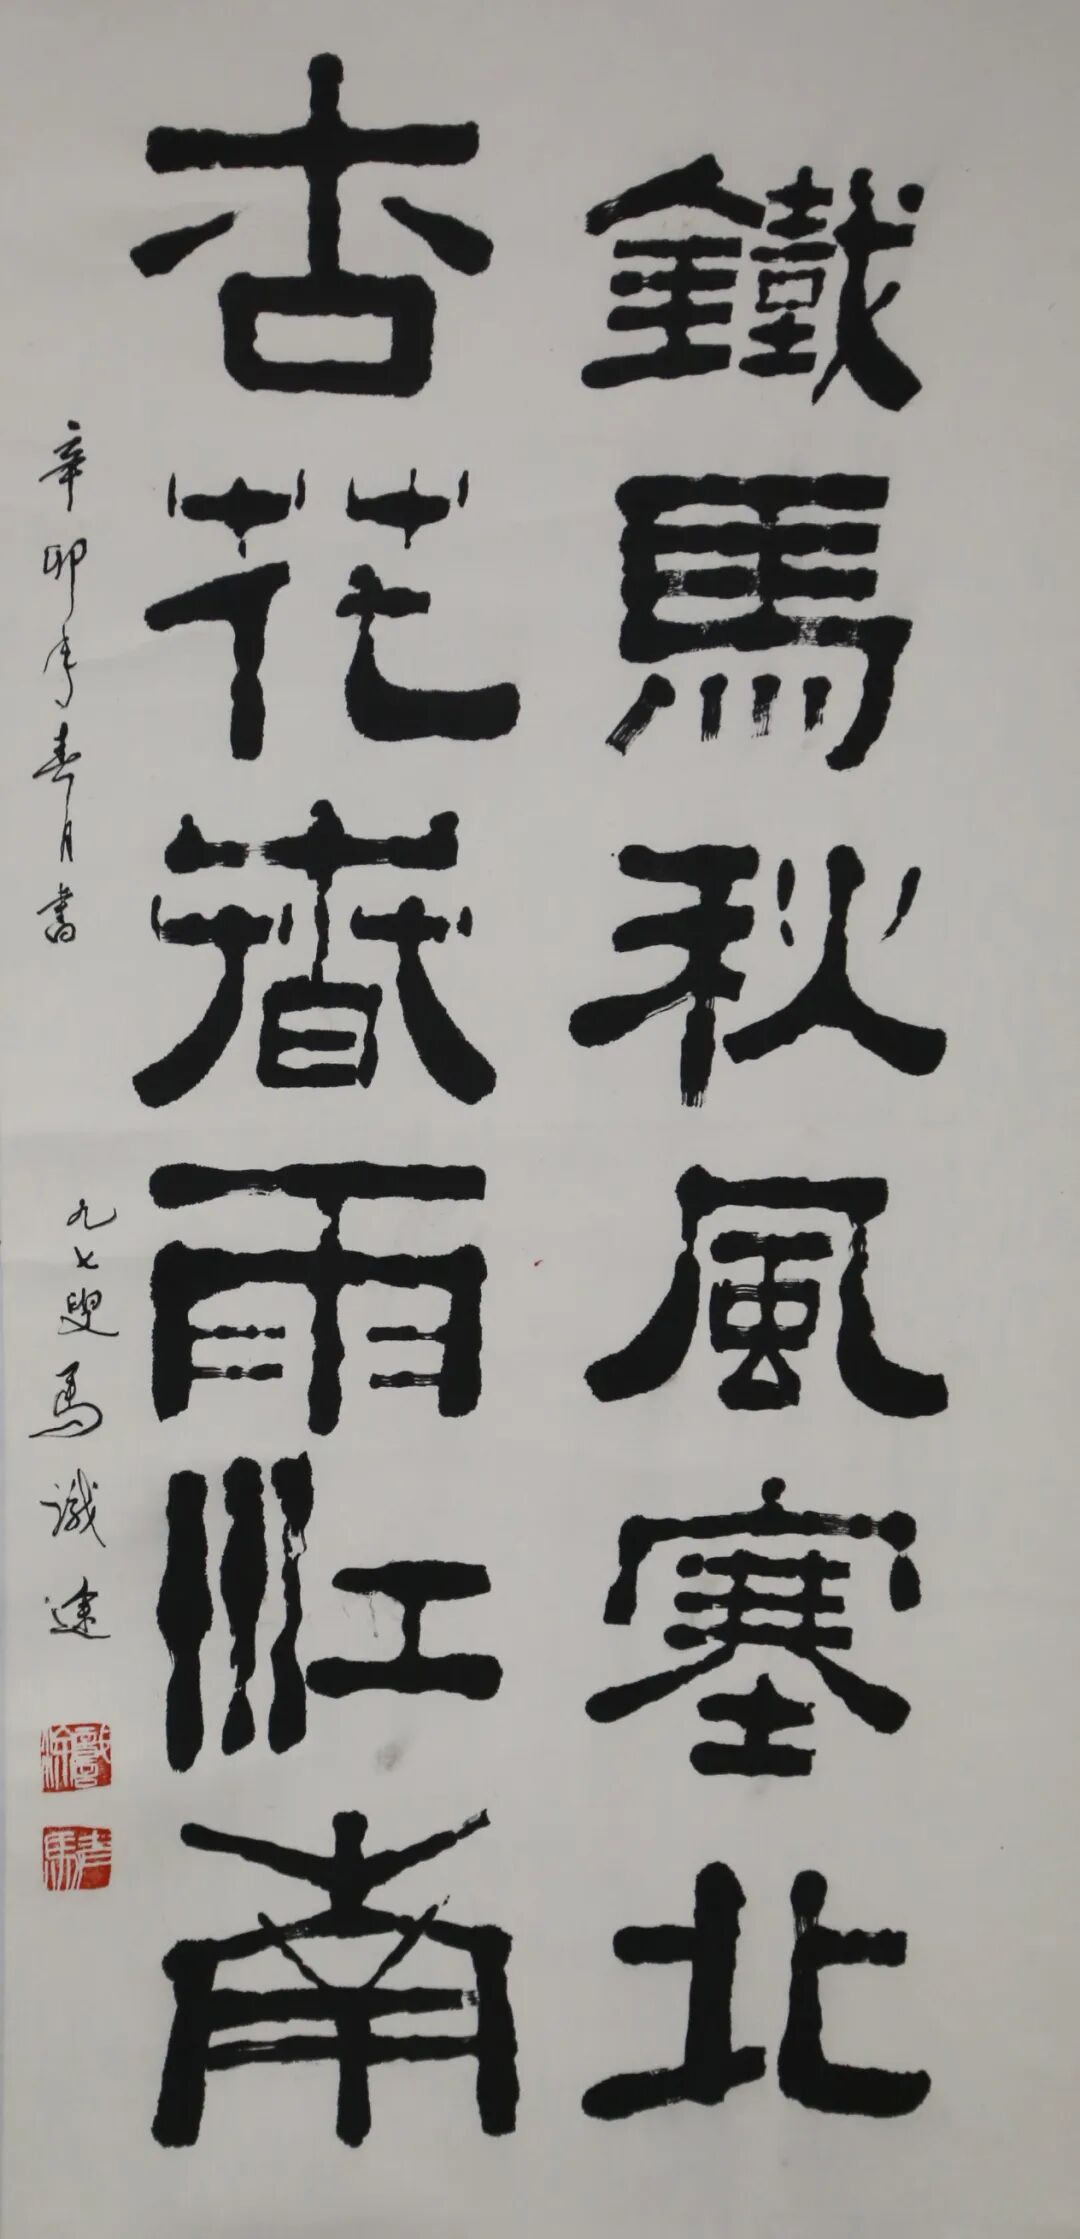 鐵馬秋風塞北
杏花春雨江南
辛卯年春月書
九七叟馬識途
識途
老馬